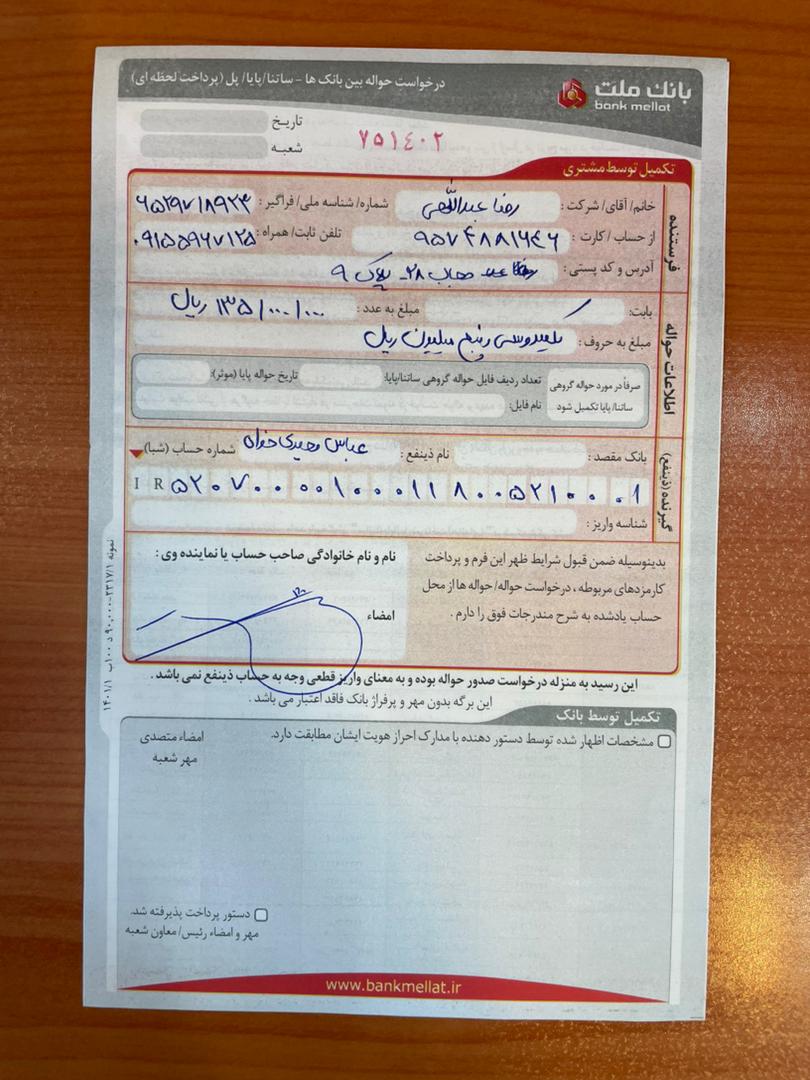 بانک ملت
bank mellat
درخواست حواله بین بانک ها - ساتنا/پایا/ پل (پرداخت لحظه ای)
تاریخ
شعبه
۷۵۱۴۰۲
تکمیل توسط مشتری
فرستنده
خانم/ آقای/ شرکت : رضا عبداللهی شماره/ شناسه ملی/ فراگیر : ۶۵۲۹۷۱۸۹۲۳
از حساب / کارت : ۹۵۷۴۸۸۱۶۴۶ تلفن ثابت/ همراه : ۰۹۱۵۵۹۶۷۱۲۵
آدرس و کد پستی : ۲۸ پلاک ۹
اطلاعات حواله
بابت: مبلغ به عدد : ۱۳۵/۰۰۰/۰۰۰ ریال
مبلغ به حروف : یکصد و سی و پنج میلیون ریال
صرفاً در مورد حواله گروهی ساتنا/پایا تکمیل شود
تعداد ردیف فایل حواله گروهی ساتنا/پایا: تاریخ حواله پایا (موثر):
نام فایل:
گیرنده (ذینفع)
بانک مقصد : نام ذینفع : عباس وحیدی خواه شماره حساب (شبا)
IR ۵۲۰۷۰۰۰۰۰۱۰۰۰۱۱۸۰۰۵۲۱۰۰۰۱
شناسه واریز :
بدینوسیله ضمن قبول شرایط ظهر این فرم و پرداخت
کارمزدهای مربوطه ، درخواست حواله/ حواله ها از محل
حساب یادشده به شرح مندرجات فوق را دارم .
نام و نام خانوادگی صاحب حساب یا نماینده وی :
امضاء
این رسید به منزله درخواست صدور حواله بوده و به معنای واریز قطعی وجه به حساب ذینفع نمی باشد .
این برگه بدون مهر و پرفراژ بانک فاقد اعتبار می باشد .
تکمیل توسط بانک
مشخصات اظهار شده توسط دستور دهنده با مدارک احراز هویت ایشان مطابقت دارد.
امضاء متصدی
مهر شعبه
دستور پرداخت پذیرفته شد.
مهر و امضاء رئیس/ معاون شعبه
www.bankmellat.ir